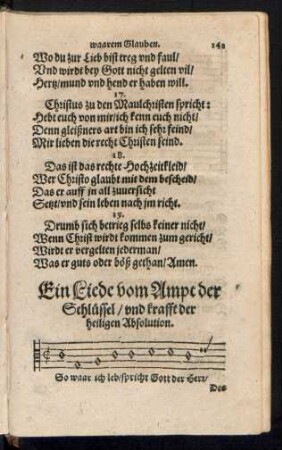 waarem Glauben. 142
Wo du zur Lieb bist treg vnd faul/
Vnd wirdt bey Gott nicht gelten vil/
Hertz/mund vnd hend er haben will.
17.
Christus zu den Maulchristen spricht:
Hebt euch von mir/ich kenn euch nicht/
Denn gleißners art bin ich sehr feind/
Mir lieben die recht Christen seind.
18.
Das ist das rechte Hochzeitkleid/
Wer Christo glaubt mit dem bescheid/
Das er auff jn all zuuersicht
Setzt/vnd sein leben nach jm richt.
19.
Drumb sich betrieg selbs keiner nicht/
Wenn Christ wirdt kommen zum gericht/
Wirdt er vergelten jederman/
Was er guts oder böß gethan/Amen.
Ein Liede vom Ampt der
Schlüssel/vnd krafft der
heiligen Absolution.
So waar ich leb/spricht Gott der Herr/
Des